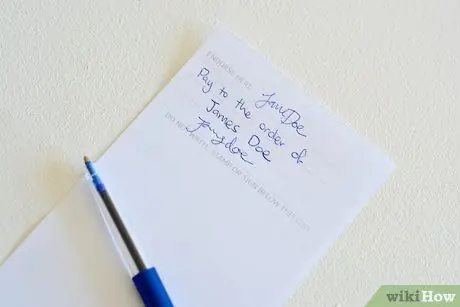 ENDORSE HERE
JaneDoe
Pay to the order of
James Doe
Jamesdoe
DO NOT WRITE, STAMP OR SIGN BELOW THIS LINE
wikiHow